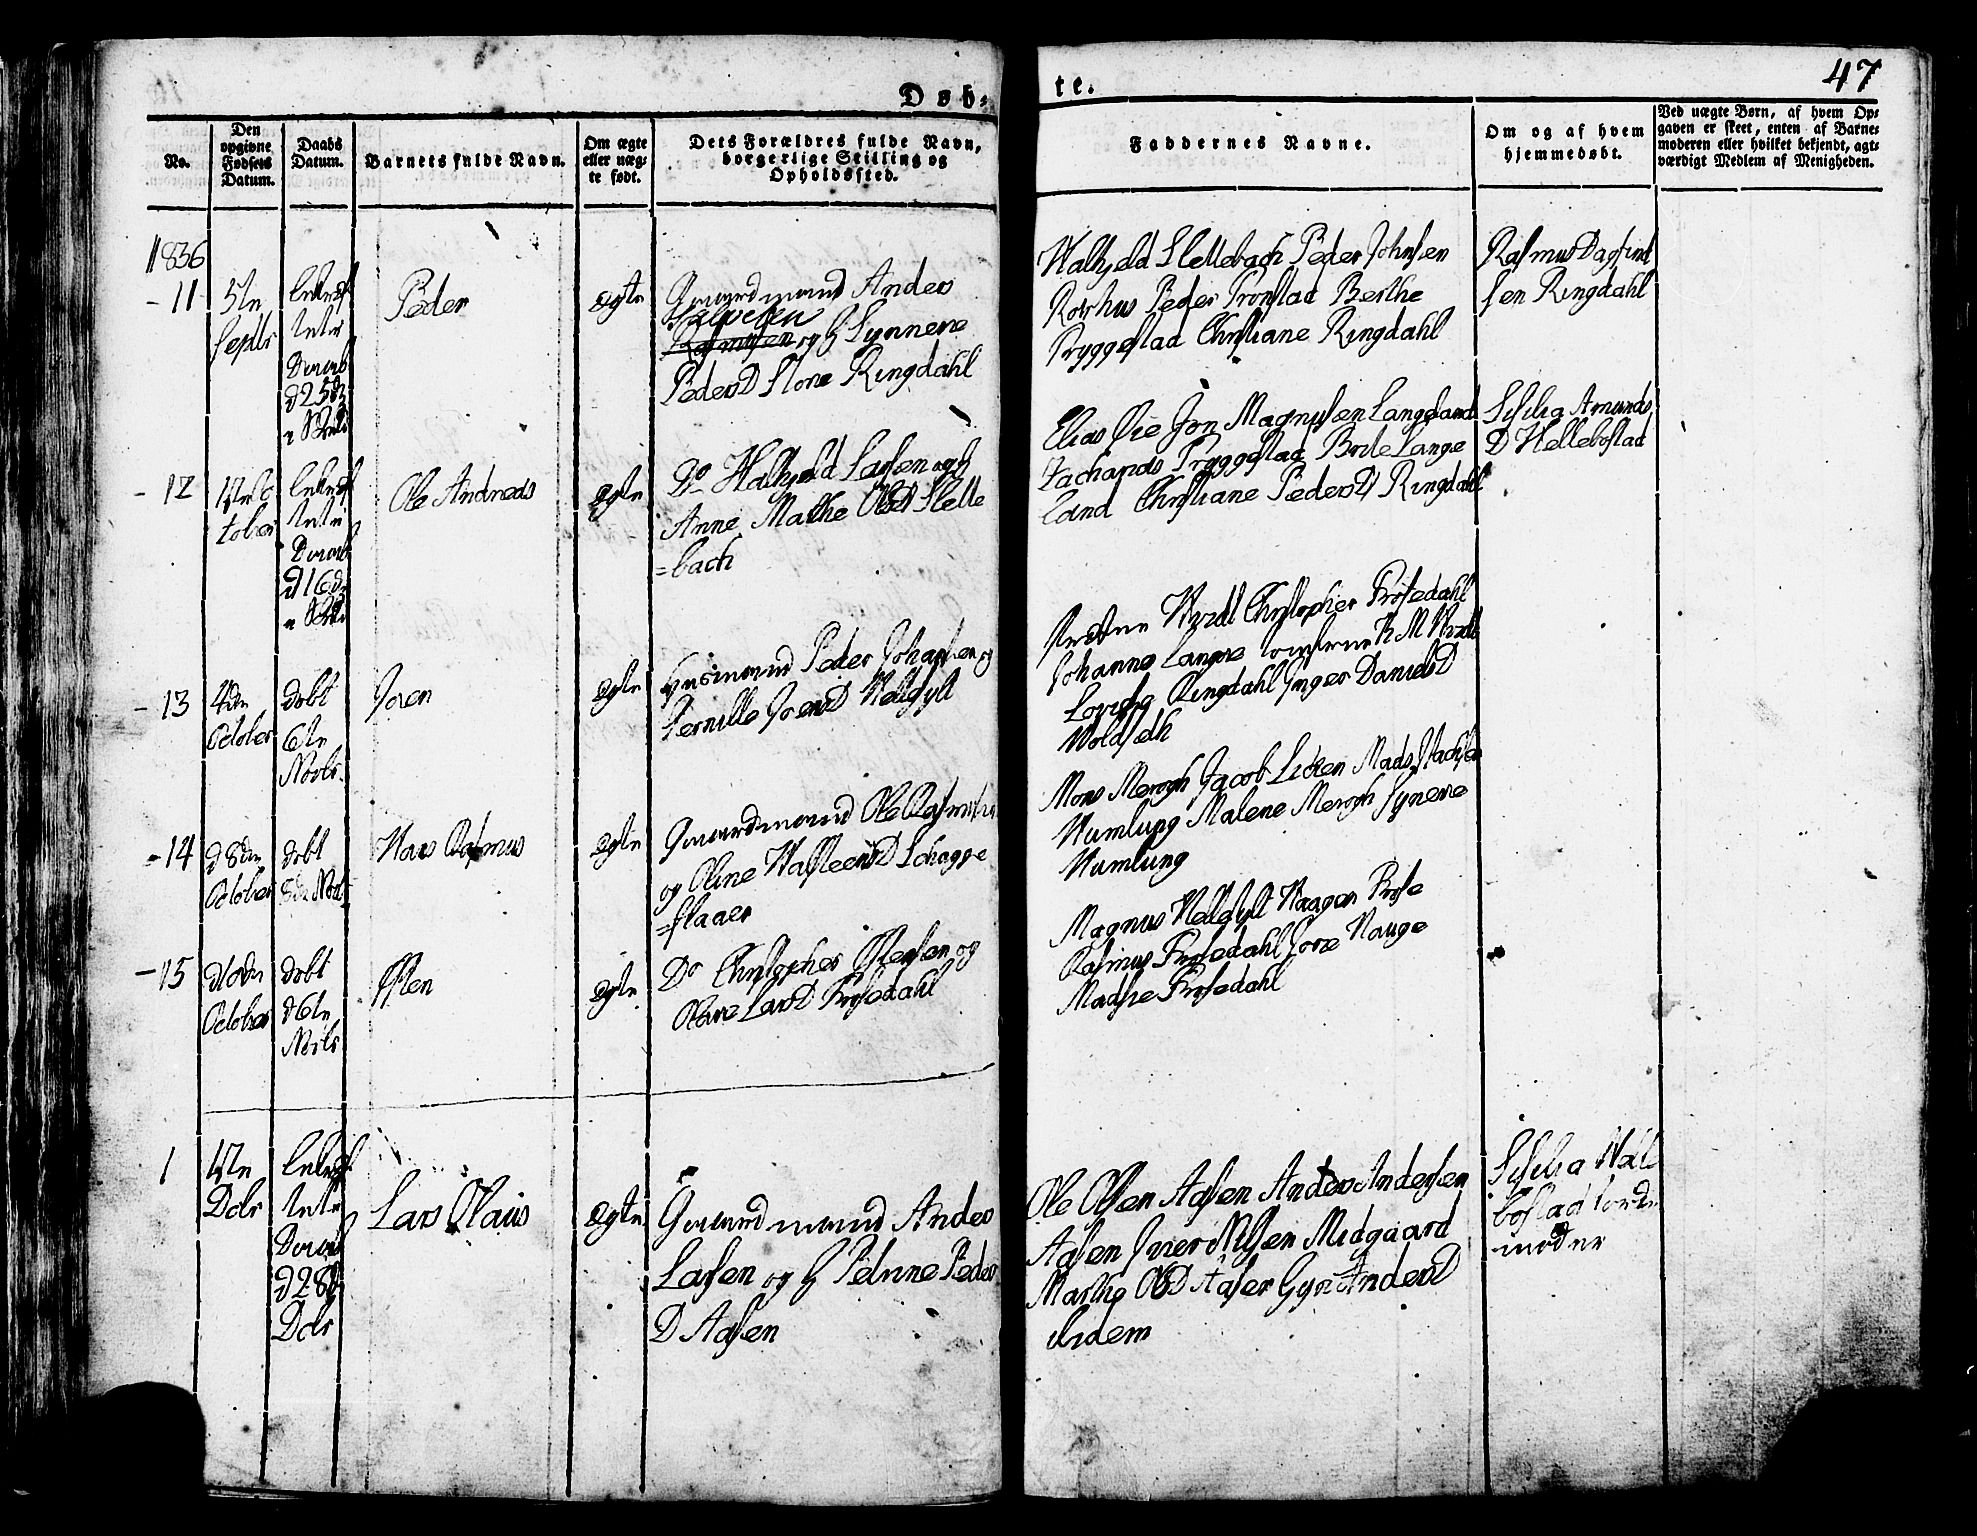 Døb-
te.
47
No.
Den
opgivne
Fødsels
Datum.
Daabs
Datum.
Barnets fulde Navn.
Om ægte
eller uæg-
te født.
Dets Forældres fulde Navn,
borgerlige Stilling og
Opholdssted.
Faddernes Navne.
Om og af hvem
hjemmedøbt.
Ved uægte Børn, af hvem Op-
gaven er skeet, enten af Barne-
moderen eller hvilket bekjendt, agt-
værdigt Medlem af Menigheden.
1836
- 11
5te
Septbr
d 25de
Peder
ægte
Gaardmand Anders
Rasmusen og H Synneve
PedersD Store Ringdahl
Peder Johnsen
Peder Tronstad Berthe
Tryggestad Christiane Ringdahl
Rasmus Dagfind
sen Ringdahl
- 12
tober
d 16de
Ole Andreas
ægte
Do Halkjeld Larsen og H
Anne Malhe OlsD Slette
=bach
Elias Øie Jon Magnusen Langeland
Zacharias Tryggestad Brite Lange
land Christiane PedersD Ringdahl
Sisilia Amunds
D Hellebostad
- 13
4de
October
døbt
6te
Novbr.
Joren
ægte
Huusmand Peder Johansen og
Pernille JoensD Hellesylt
Christopher Frøsedahl
Johannes Langøe
Lovise Ringdahl Inger DanielsD
Woldsedh
- 14
d 8de
October
døbt
8de Novbr
Hans Rasmus
ægte
Gaardmand Ole Rasmusen
og Oline HalsteensD Schagge
=flaaer
Mons Merogh Jacob Lieen Mads
Humlung Malene Merogh Synneve
Humlung
- 15
d 10de
October
døbt
d 6te
Novbr
Østen
ægte
Do Christopher Østensen og
LarsD Frøsedahl
Magnus Hellesylt Haagen Frøse
Rasmus Frøsedahl Hauge
Madse Frøsedahl
1
17te
Dcbr
d 28de
Dcbr
Lars Olaus
ægte
Gaardmand Anders
Larsen og H Petrine Peders
D Aasen
Ole Olsen Aasen Anders Andersen
Aasen Iver Nilsen Midgaard
Marthe OlsD Aasen AndersD
ibidem
Sisilia Hell
bostad Jorde
moder